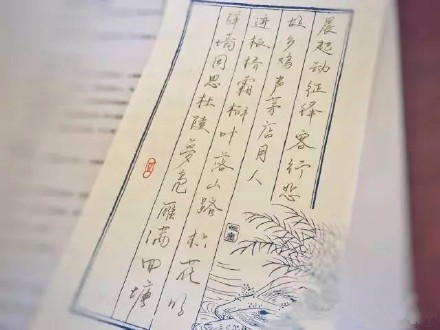 晨起动征铎客行悲
故乡鸡声茅店月人
迹板桥霜槲叶落山路枳花明
驿墙因思杜陵梦凫雁满回塘